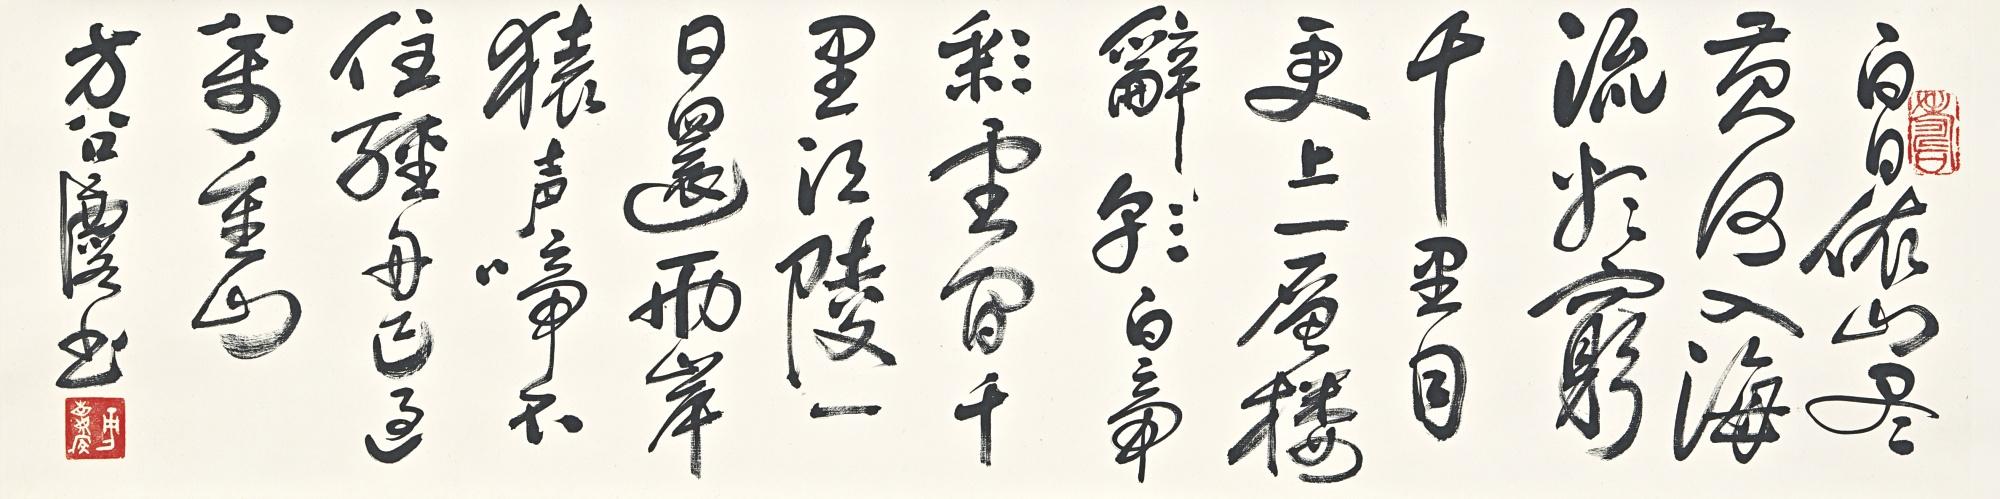 白日依山尽
黄河入海
流欲穷
千里目
更上一层楼
辞彩白帝
彩云间千
里江陵一
日还两岸
猿声啼不
住轻舟已过
万重山
方
书